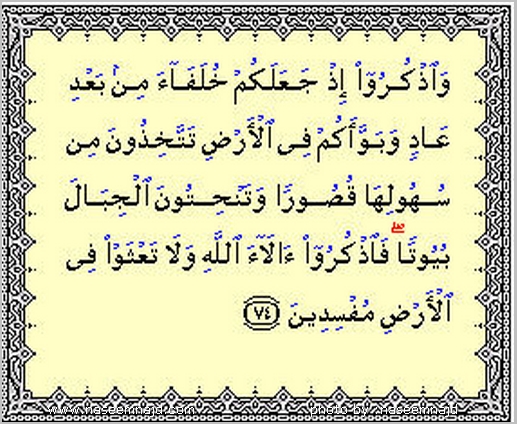 وَٱذْكُرُوٓا۟ إِذْ جَعَلَكُمْ خُلَفَآءَ مِنۢ بَعْدِ
عَادٍ وَبَوَّأَكُمْ فِى ٱلْأَرْضِ تَتَّخِذُونَ مِن
سُهُولِهَا قُصُورًا وَتَنْحِتُونَ ٱلْجِبَالَ
بُيُوتًا ۖ فَٱذْكُرُوٓا۟ ءَالَآءَ ٱللَّهِ وَلَا تَعْثَوْا۟ فِى
ٱلْأَرْضِ مُفْسِدِينَ ٧٤
www.naseemnajd.com photo by : naseemnajd